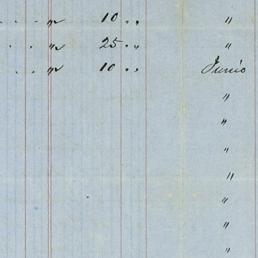 . . . " 10 . . "
. . . " 25 . . "
. . . " 10 . . Junio
"
"
"
"
"
"
"